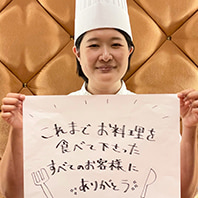 これまで お料理を
食べて下さった
すべてのお客様に
ありがとう